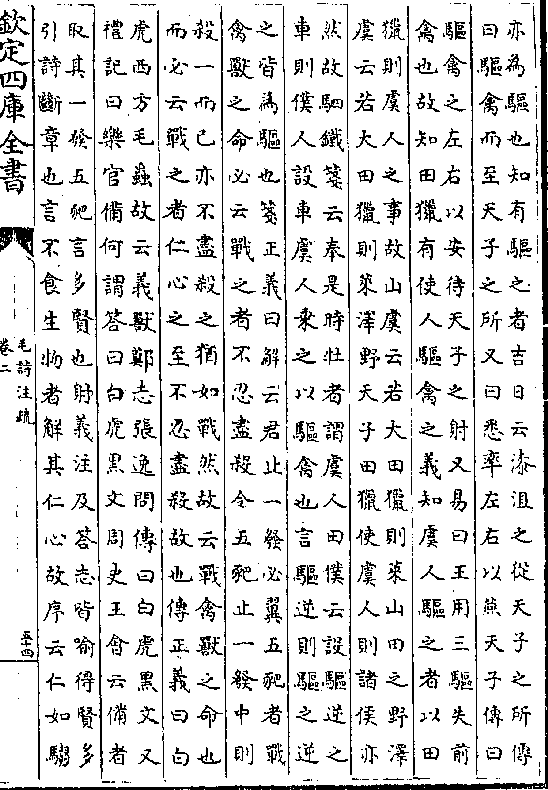 亦為驅也知有驅之者吉日云漆沮之從天子之所傳
曰驅禽而至天子之所又曰悉率左右以燕天子傳曰
驅禽之左右以安待天子之射又易曰王用三驅失前
禽也故知田獵有使人驅禽之義知虞人驅之者以田
獵則虞人之事故山虞云若大田獵則萊山田之野澤
虞云若大田獵則萊澤野天子田獵使虞人則諸侯亦
然故駟鐵箋云奉是時牡者謂虞人田僕云設驅逆之
車則僕人設車虞人乘之以驅禽也言驅逆則驅之逆
之皆為驅也箋正義曰解云君止一發必翼五豝者戰
禽獸之命必云戰之者不忍盡殺令五豝止一發中則
殺一而已亦不盡殺之猶如戰然故云戰禽獸之命也
而必云戰之者仁心之至不忍盡殺故也傳正義曰白
虎西方毛蟲故云義獸鄭志張逸問傳曰白虎黑文又
禮記曰樂官備何謂答曰白虎黑文周史王會云備者
取其一發五豝言多賢也射義注及答志皆喻得賢多
引詩斷章也言不食生物者解其仁心故序云仁如騶
欽定四庫全書
毛詩注疏
卷二
五十四